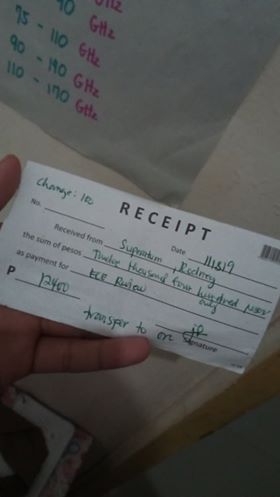 90 GHz
75 - 110 GHz
90 - 140 GHz
110 - 170 GHz
Change: 100
RECEIPT
No.
Date 11/18/19
Received from Supratum, Rodney
the sum of pesos Twelve thousand four hundred pesos only
as payment for ECE Review
P 12400
Signature
transfer to on